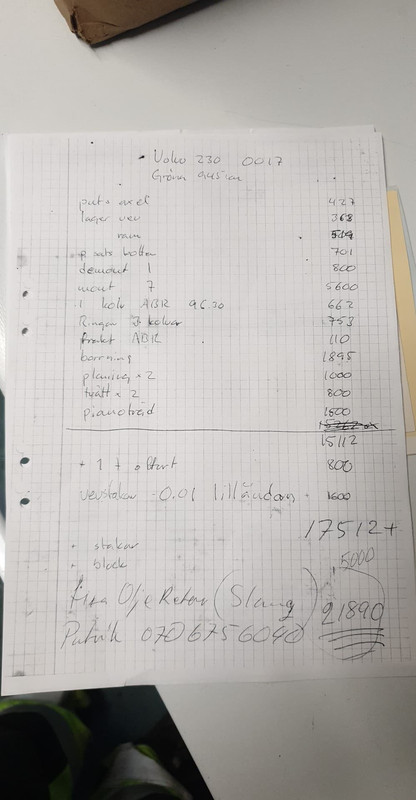 Volvo 230 0017
Gröna
puts axel 427
lager vev 368
ram
sats botten 701
demont 1 800
mont 7 5600
1 kolv ABR 96.30 662
Ringar kolvar 1753
frakt ABR 110
borrning 1895
planing × 2 1000
tvätt × 2 800
pianotråd 1500
15112
+ 1 t 800
vevstakar -0.01 lilländan 1600
17512+
• stakar
• block
5000
Olje Retur (Slang) 21890
Patrik 0706756040